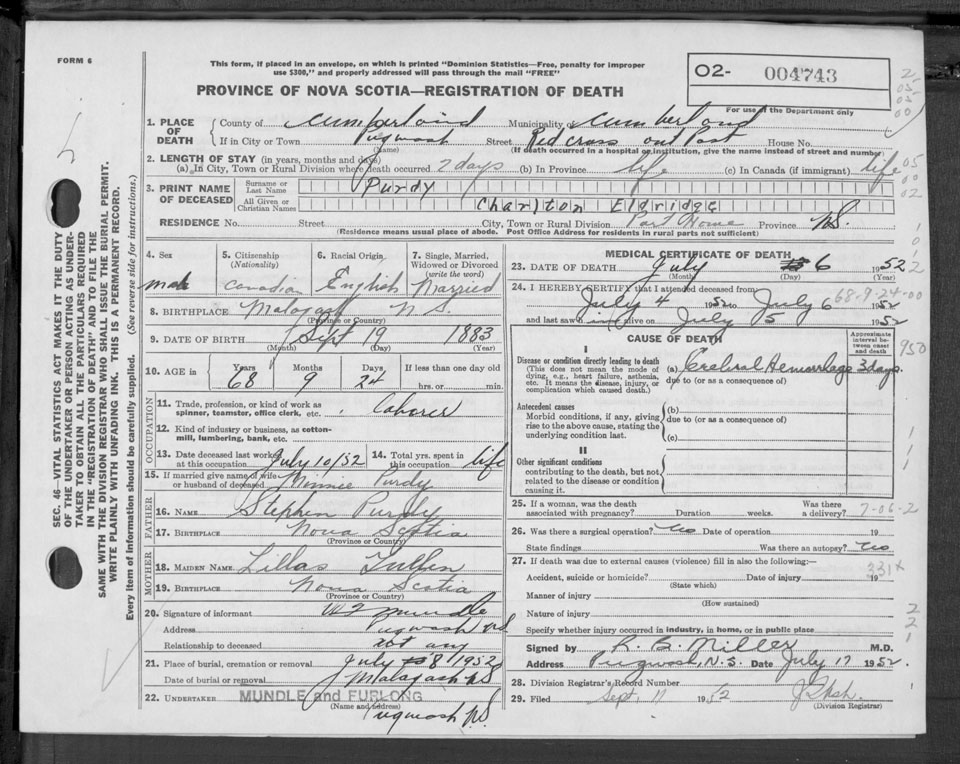 FORM 6
This form, if placed in an envelope, on which is printed "Dominion Statistics—Free, penalty for improper
use $300," and properly addressed will pass through the mail "FREE"
02- 004743
PROVINCE OF NOVA SCOTIA—REGISTRATION OF DEATH
For use of the Department only
1. PLACE OF DEATH County of Cumberland Municipality of Cumberland
If in City or Town Pugwash Street Red Cross out Post House No.
(Name) (If death occurred in a hospital or institution, give the name instead of street and number)
2. LENGTH OF STAY (in years, months and days)
(a) In City, Town or Rural Division where death occurred 2 days (b) In Province life (c) In Canada (if immigrant) life
3. PRINT NAME OF DECEASED Surname or Last Name Purdy
All Given or Christian Names Charlton Eldridge
RESIDENCE No. Street City, Town or Rural Division Port Howe Province N.S.
(Residence means usual place of abode. Post Office Address for residents in rural parts not sufficient)
4. Sex male
5. Citizenship (Nationality) Canadian
6. Racial Origin English
7. Single, Married, Widowed or Divorced (write the word) Married
8. BIRTHPLACE Malagash N.S.
(Province or Country)
9. DATE OF BIRTH Sept 19 1883
(Month) (Day) (Year)
10. AGE in Years 68 Months 9 Days 24 If less than one day old hrs. or min.
OCCUPATION
11. Trade, profession, or kind of work as spinner, teamster, office clerk, etc. Laborer
12. Kind of industry or business, as cotton-mill, lumbering, bank, etc.
13. Date deceased last worked at this occupation July 10/52
14. Total yrs. spent in this occupation life
15. If married give name of wife or husband of deceased Minnie Purdy
FATHER
16. NAME Stephen Purdy
17. BIRTHPLACE Nova Scotia
(Province or Country)
MOTHER
18. MAIDEN NAME Lillas
19. BIRTHPLACE Nova Scotia
(Province or Country)
20. Signature of informant Mundle
Address Pugwash NS
Relationship to deceased not any
21. Place of burial, cremation or removal July 8/1952
Date of burial or removal Malagash NS
22. UNDERTAKER MUNDLE and FURLONG
(Name and address)
Pugwash NS
MEDICAL CERTIFICATE OF DEATH
23. DATE OF DEATH July 6 1952
(Month) (Day) (Year)
24. I HEREBY CERTIFY that I attended deceased from:
July 4 1952 to July 6 1952
68-9-24-00
and last saw him alive on July 5 1952
CAUSE OF DEATH
Approximate interval between onset and death
I
Disease or condition directly leading to death
(This does not mean the mode of dying, e.g., heart failure, asthenia, etc. It means the disease, injury, or complication which caused death.)
(a) Cerebral Hemorrhage 3 days
due to (or as a consequence of)
Antecedent causes
Morbid conditions, if any, giving rise to the above cause, stating the underlying condition last.
(b)
due to (or as a consequence of)
(c)
II
Other significant conditions
contributing to the death, but not related to the disease or condition causing it.
25. If a woman, was the death associated with pregnancy? Duration weeks. Was there a delivery?
7-06-2
26. Was there a surgical operation? No Date of operation 19
State findings Was there an autopsy? No
27. If death was due to external causes (violence) fill in also the following:—
331x
Accident, suicide or homicide? Date of injury 19
(State which)
Manner of injury
(How sustained)
Nature of injury
Specify whether injury occurred in industry, in home, or in public place
Signed by R. B. Miller M.D.
Address Pugwash, N.S. Date July 17 1952.
28. Division Registrar's Record Number
29. Filed Sept. 11 1952
(Division Registrar)
950
SEC. 46—VITAL STATISTICS ACT MAKES IT THE DUTY
OF THE UNDERTAKER OR PERSON ACTING AS UNDER-
TAKER TO OBTAIN ALL THE PARTICULARS REQUIRED
IN THE "REGISTRATION OF DEATH" AND TO FILE THE
SAME WITH THE DIVISION REGISTRAR WHO SHALL ISSUE THE BURIAL PERMIT.
WRITE PLAINLY WITH UNFADING INK. THIS IS A PERMANENT RECORD.
Every item of information should be carefully supplied. (See reverse side for instructions.)